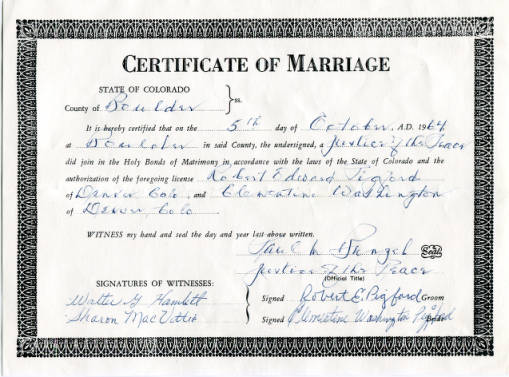 CERTIFICATE OF MARRIAGE
STATE OF COLORADO
County of Boulder } ss.
It is hereby certified that on the 5th day of October, A.D. 1964
at Boulder in said County, the undersigned, a Justice of the Peace
did join in the Holy Bonds of Matrimony in accordance with the laws of the State of Colorado and the
authorization of the foregoing license Robert Edward Pigford
of Denver Colo. and Clementine Washington
of Denver, Colo.
WITNESS my hand and seal the day and year last above written.
Paul (Seal)
Justice of the Peace
(Official Title)
SIGNATURES OF WITNESSES:
Walter G Hamlett
Signed Robert E. Pigford Groom
Sharon MacVittie
Signed Clementine Washington Pigford Bride